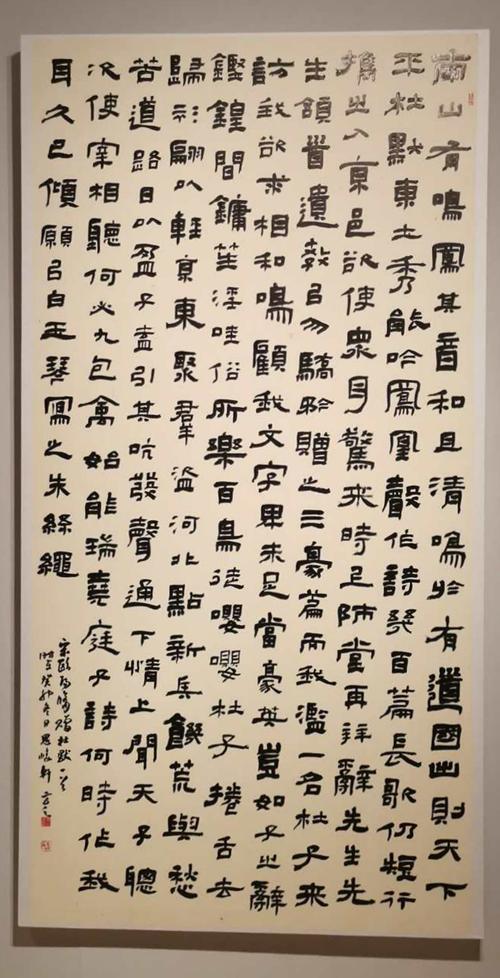 南山有鳴鳳其音和且清鳴於有道國出則天下
平杜默東土秀能吟鳳凰聲作詩幾百篇長歌仍短行
攜之入京邑欲使衆耳驚來時上師堂再拜辭先生先
生頷首遺教以勿驕矜贈之三豪篇而我濫一名杜子來
訪我欲求相和鳴顧我文字卑未足當豪英豈如子之辭
鏗鍠間鏞笙淫哇俗所樂百鳥徒嚶嚶杜子捲舌去
歸衫翩以輕京東聚羣盜河北點新兵饑荒與愁
苦道路日以盈子盍引其吭發聲通下情上聞天子聰
次使宰相聽何必九包禽始能瑞堯庭子詩何時作我
耳久已傾願以白玉琴寫之朱絲繩
宋歐陽脩贈杜默一首
癸卯冬日